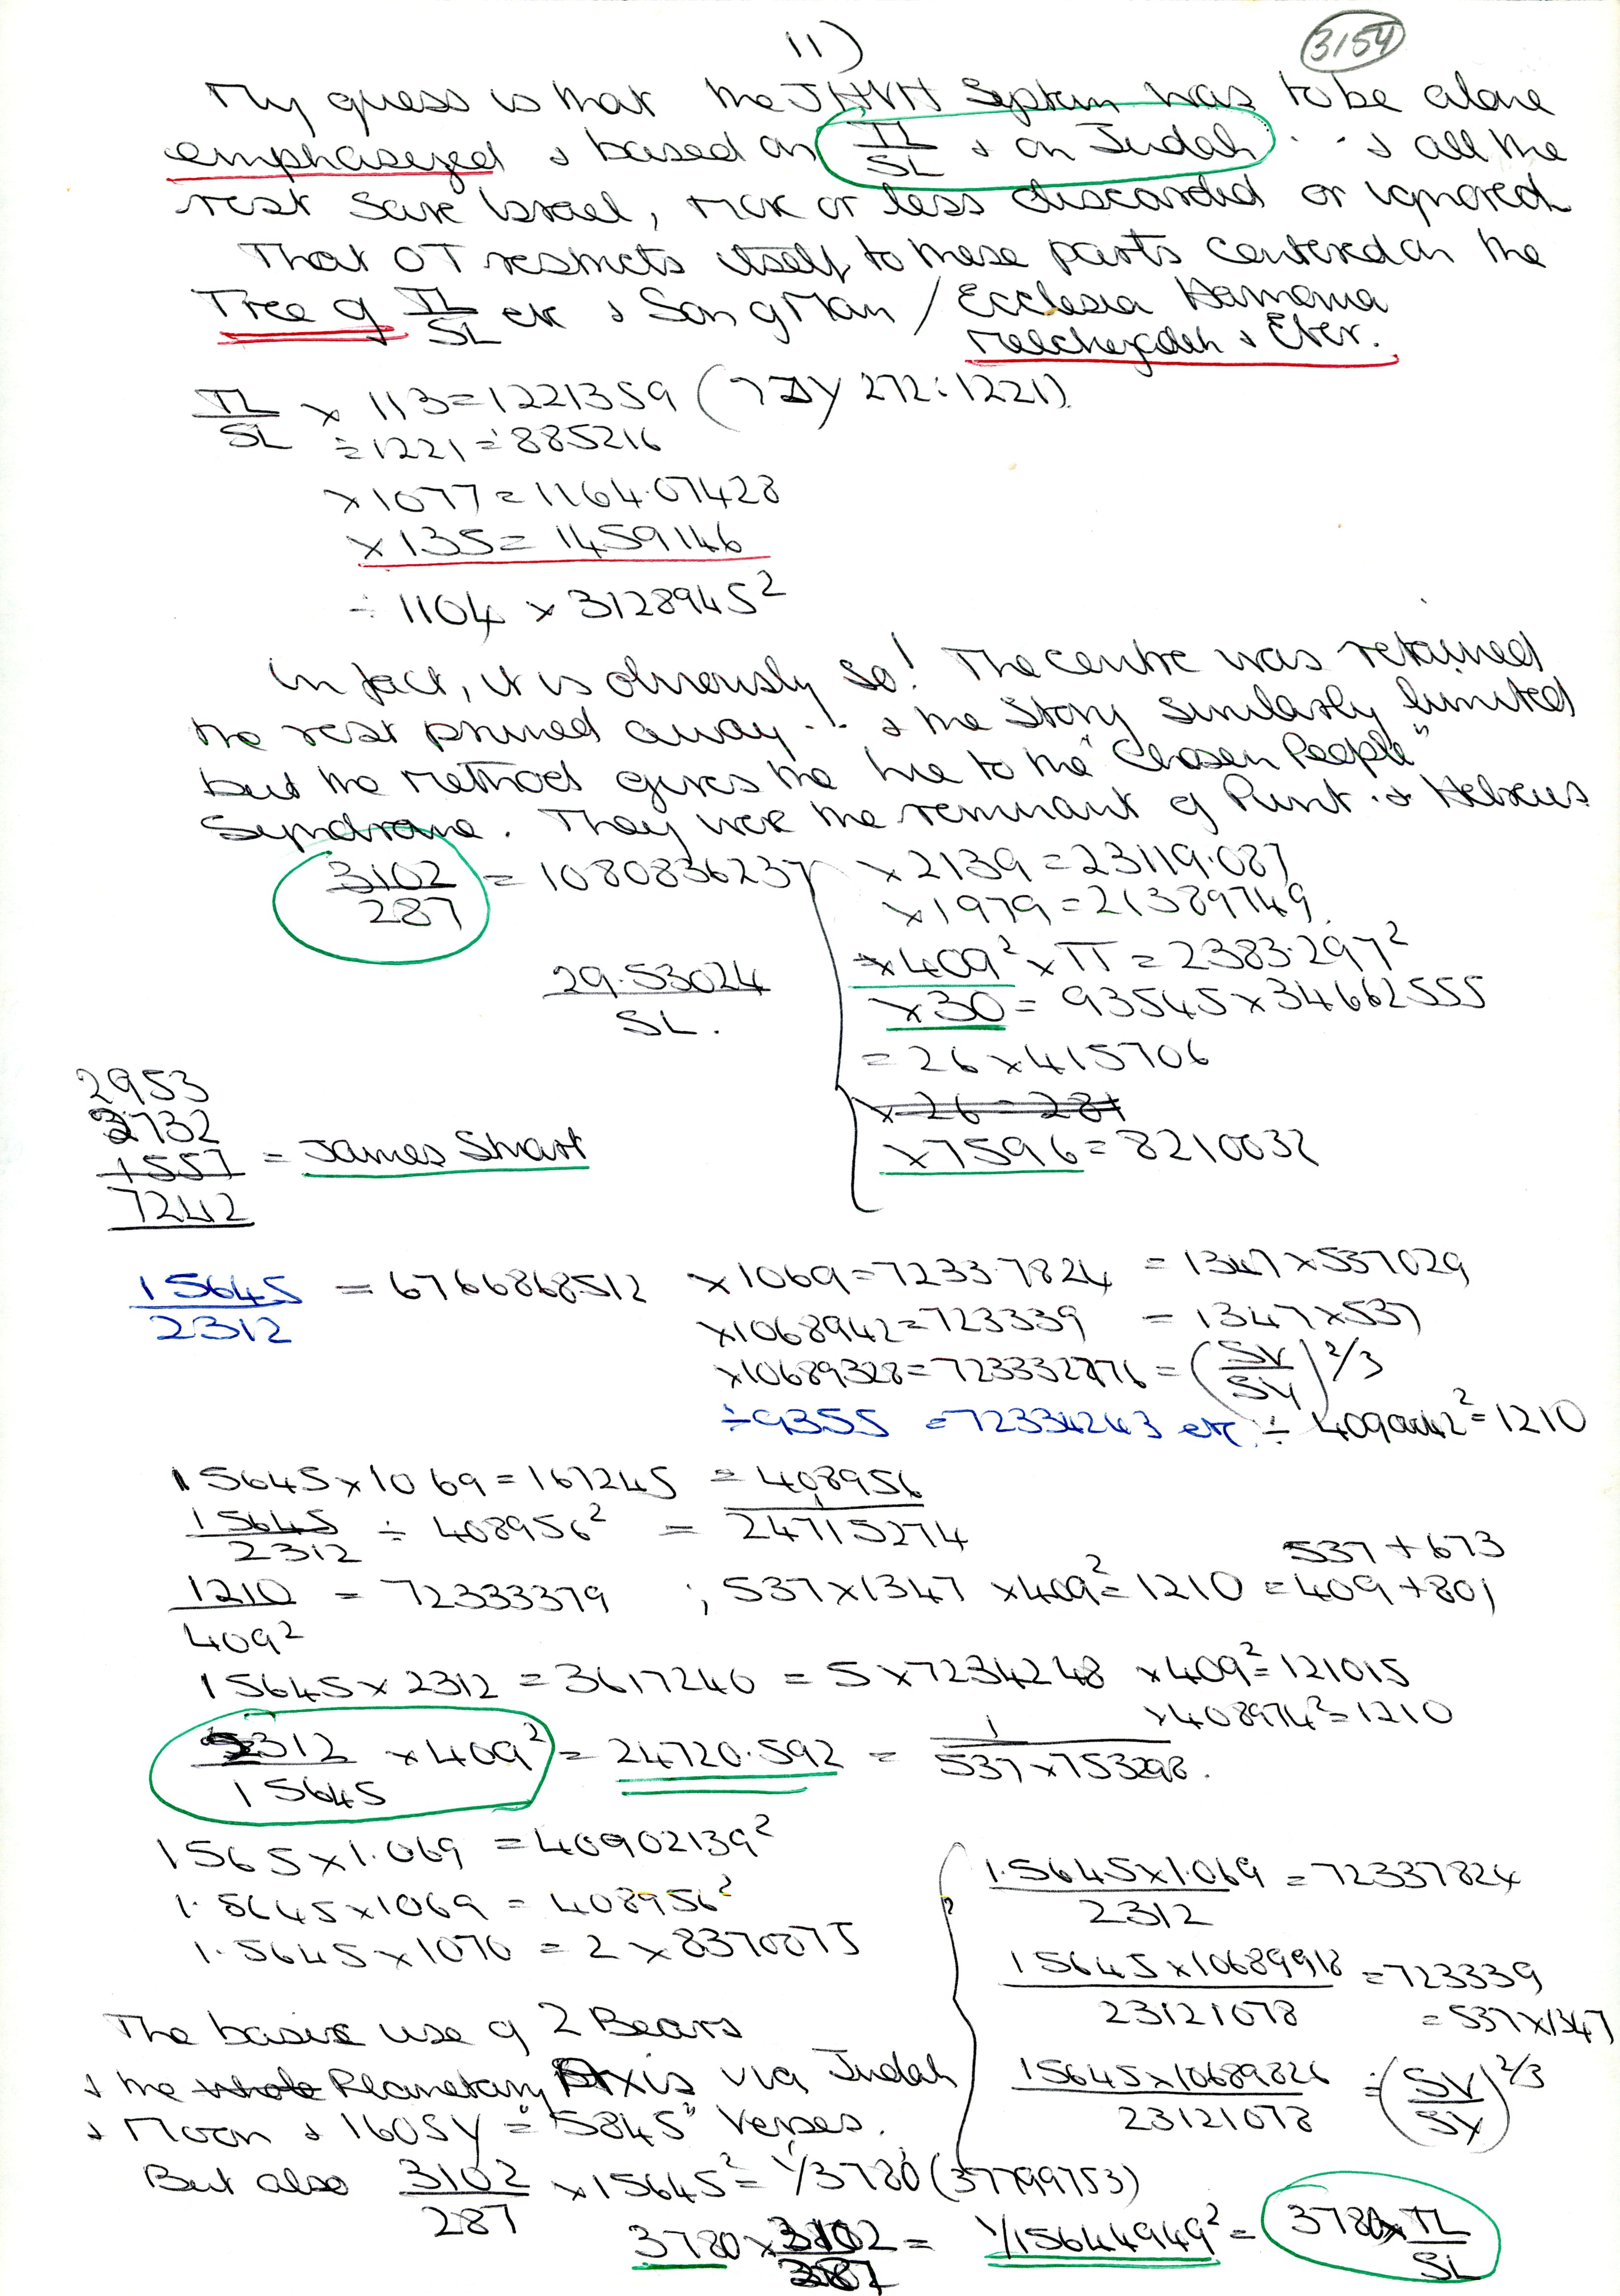 11)
3154
My guess is that the JHVH Septum was to be alone
emphasezed & based on TL/SL & on Judah . . & all the
rest save Israel, more or less discarded or ignored
That OT restricts itself to these parts centered on the
Tree of TL/SL etc & Son of Man / Ecclesia Harmonia
Melchezdek & Eber.
TL/SL × 113 = 1221359 ( 272 : 1221)
÷ 1221 = 885216
× 1077 = 1164.07428
× 135 = 1459146
÷ 1104 × 3128945²
In fact, it is obviously so! The centre was retained
the rest pruned away . . & the Story similarly limited
but the method gives the lie to the "Chosen People"
Syndrome. They were the remnant of Punt . & Hebreus
3102/287 = 1080836237
× 2139 = 23119.087
× 1979 = 21389749.
× 409² × π = 2383.297²
29.53024/SL.
× 30 = 93545 × 34662555
= 26 × 415706
× 26 = 281
× 7596 = 8210032
2953
2732
1557 = James Stuart
7242
15645/2312 = 6766868512 × 1069 = 7233.7824 = 1347 × 537029
× 1068942 = 723339 = 1347 × 537
× 10689328 = 723332876 = (SV/SY)2/3
÷ 9355 = 72334243 etc ÷ 4090042² = 1210
15645 × 1069 = 167245 = 408956
15645/2312 ÷ 408956² = 1/24715274
1210/409² = 72333379 ; 537 × 1347 × 409² = 1210 = 409 + 801
537 + 673
15645 × 2312 = 3617240 = 5 × 7234248 × 409² = 121015
× 408974² = 1210
2312/15645 × 409² = 24720.592 = 1/537 × 753298.
1565 × 1.069 = 40902139²
1.5645 × 1069 = 408956²
1.5645 × 1070 = 2 × 8370075
1.5645 × 1.069/2312 = 72337824
15645 × 10689918/23121078 = 723339
= 537 × 1347
15645 × 10689826/23121078 = (SV/SY)2/3
The basic use of 2 Bears
& the whole Planetary Axis via Judah
& Moon & 160SY = "5845" Verses.
But also 3102/287 × 15645² = 1/3780 (37799753)
3780 × 3102/287 = 1/15644949² = 3780 × TL/SL